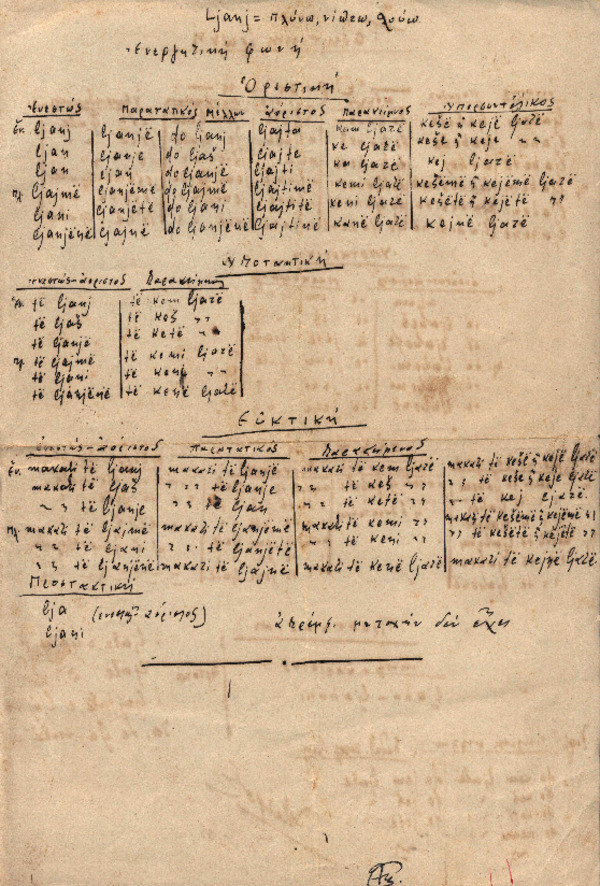 Ljanj = πλύνω, νίπτω, λούω.
Ἐνεργητική φωνή
Ὁριστική
Ἐνεστώς Παρατατικός Μέλλων Ἀόριστος Παρακείμενος Ὑπερσυντέλικος
Ἑν. ljanj ljanjë do ljanj ljajta kam ljarë keše ἤ kejë ljarë
ljan ljanje do ljaš ljajte ke ljarë keše ἤ keje " "
ljan ljan do ljanjë ljajti ka ljarë kej ljarë
Πλ. ljajmë ljanjëmë do ljajmë ljajtimë kemi ljarë kešëmë ἤ kejëmë ljarë
ljani ljanjëtë do ljani ljajtitë keni ljarë kešëtë ἤ kejëtë "
ljanjënë ljajnë do ljanjënë ljajtinë kanë ljarë kejnë ljarë
Ὑποτακτική
Ἐνεστώς-ἀόριστος Παρακείμενος
Ἑν. të ljanj të kem ljarë
të ljaš të keš " "
të ljanjë të ketë " "
Πλ. të ljajmë të kemi ljarë
të ljani të keni " "
të ljanjënë të kenë ljarë
Εὐκτική
Ἐνεστώς-ἀόριστος Παρατατικός Παρακείμενος
Ἑν. makari të ljanj makari të ljanje makari të kem ljarë makari të kešë ἤ kejë ljarë
makari të ljaš " " të ljanje " " të keš " " " " të keše ἤ keje ljarë
" " të ljanje " " të ljan " " të ketë " " " " të kej ljarë
Πλ. makari të ljajmë makari të ljanjëmë makari të kemi " " makari të kešëmë ἤ kejëmë " "
" " të ljani " " të ljanjëtë " " të keni " " " " të kešëtë ἤ kejëtë " "
" " të ljanjënë makari të ljajnë makari të kenë ljarë makari të kejnë ljarë
Προστακτική
lja (ἐνεστ. ἀόριστος)
ljani ἀπαρέμφ. μετοχήν δέν ἔχει